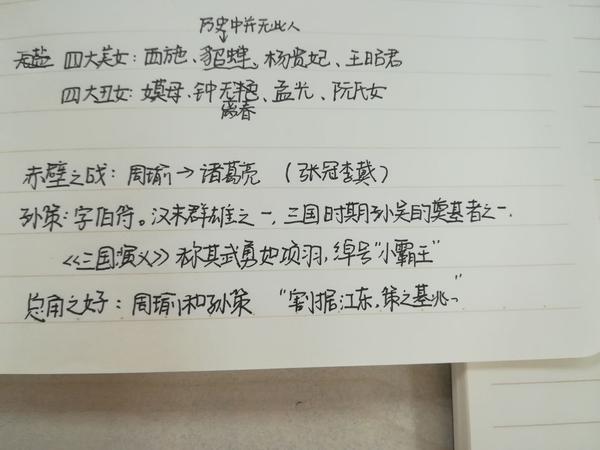 历史中并无此人
无盐 四大美女：西施、貂蝉、杨贵妃、王昭君
四大丑女：嫫母、钟无艳、孟光、阮氏女
离春
赤壁之战：周瑜→诸葛亮（张冠李戴）
孙策：字伯符。汉末群雄之一，三国时期孙吴的奠基者之一.
《三国演义》称其武勇如项羽，绰号“小霸王”
总角之好：周瑜和孙策 “割据江东，策之基兆。”